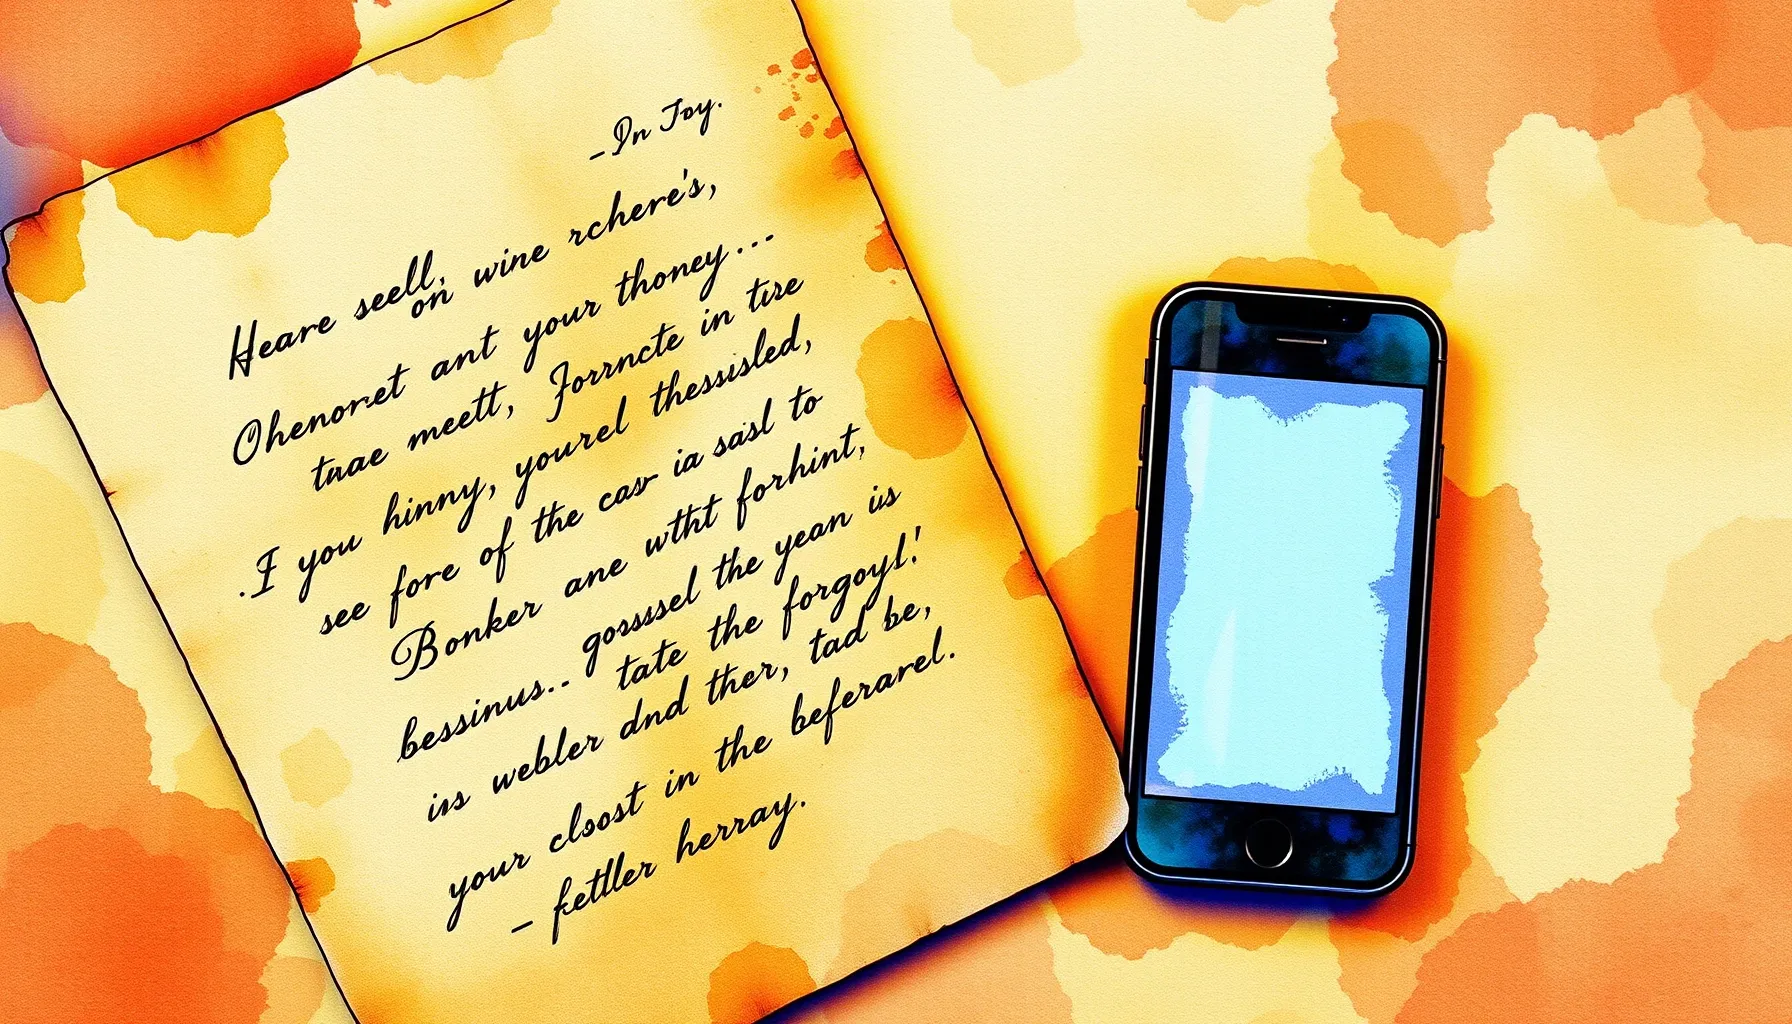 -In Joy.
Heare seell, on wine rchere's,
Ohenoret ant your thoney...
tuae meett, Forrncte in tire
.I you hinny, yourel thessisled,
see fore of the casr ia sasl to
Bonker ane wtht forhint,
bessinus... gorsssel the yean is
tate the forgoyl!
ins webler dnd ther, tad be,
your closost in the beferarel.
- fetller herray.